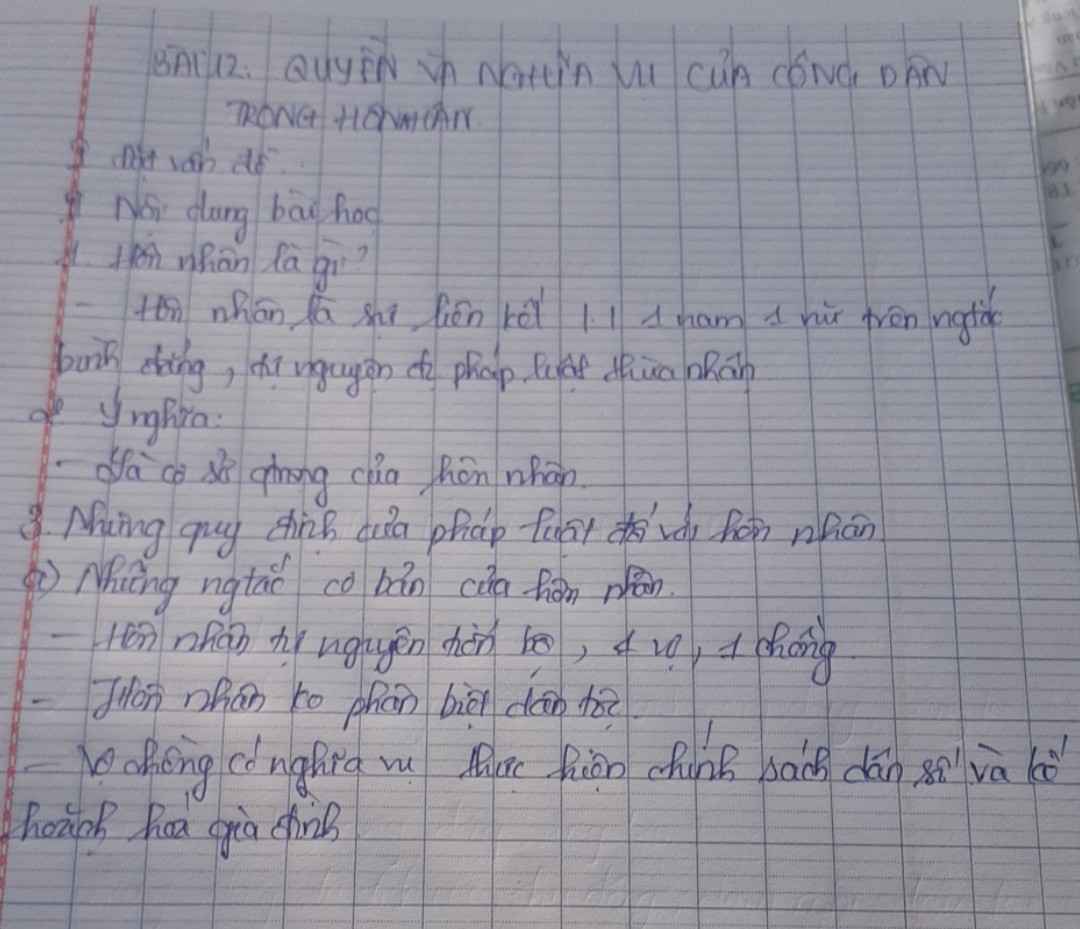 BÀI 12: QUYỀN VÀ NGHĨA VỤ CỦA CÔNG DÂN
TRONG HÔN NHÂN
I Đặt vấn đề.
II Nội dung bài học
1. Hôn nhân là gì?
- Hôn nhân là sự liên kết 1 nam 1 nữ trên ngtắc
bình đẳng, tự nguyện đc pháp luật thừa nhận
2. Ý nghĩa:
- là cơ sở của hôn nhân.
3. Những quy định của pháp luật đối với hôn nhân
a) Những ngtắc cơ bản của hôn nhân.
- Hôn nhân tự nguyện tiến bộ, 1 vợ, 1 chồng
- Hôn nhân ko phân biệt dân tộc
- Vợ chồng có nghĩa vụ thực hiện chính sách dân số và kế
hoạch hoá gia đình